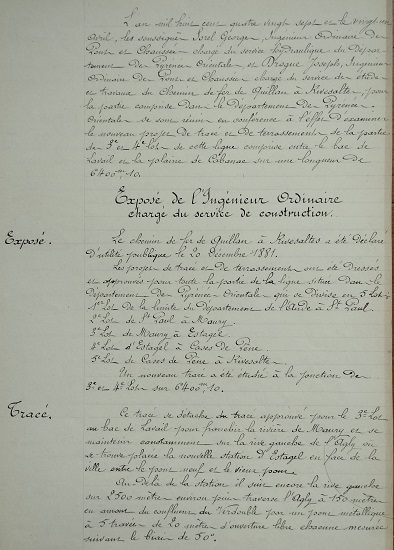 L'an mil huit cent quatre vingt sept et le vingt
Avril, les soussignés Sorel George, Ingénieur Ordinaire de
Ponts et Chaussées chargé du service hydraulique du Dépar-
tement des Pyrénées Orientales et Joseph, Ingénieur
Ordinaire des Ponts et Chaussées chargé du service des études
et travaux du Chemin de fer de Quillan à Rivesaltes, pour
la partie comprise dans le Département des Pyrénées-
Orientales se sont réunis en conférence à l'effet d'examiner
le nouveau projet de tracé et de terrassements de la partie
des 3e et 4e Lots de cette ligne comprise entre le bac de
Lavail et la plaine de Cabanac sur une longueur de
6400m,10.
Exposé de l'Ingénieur Ordinaire
chargé du service de construction.
Exposé.
Le chemin de fer de Quillan à Rivesaltes a été déclaré
d'utilité publique le 20 Décembre 1881.
Les projets de tracé et de terrassements ont été dressés
et approuvés pour toute la partie de la ligne située dans le
Département des Pyrénées-Orientales, qui se divise en 5 Lots
1er Lot de la limite du Département de l'Aude à St Paul.
2e Lot de St Paul à Maury.
3e Lot de Maury à Estagel
4e Lot d'Estagel à Cases de Pène
5e Lot de Cases de Pène à Rivesaltes.
Un nouveau tracé a été étudié à la jonction des
3e et 4e Lots sur 6400m,10.
Tracé.
Ce tracé se détache du tracé approuvé pour le 3e Lot
au bac de Lavail pour franchir la rivière de Maury et se
maintenir constamment sur la rive gauche de l'Agly où
se trouve placée la nouvelle station d'Estagel en face de la
ville entre le pont neuf et le vieux pont.
Au delà de la station il suit encore la rive gauche
sur 2500 mètres environ puis traverse l'Agly à 150 mètres
en amont du confluent du Verdouble par un pont métallique
à 5 travées de 20 mètres d'ouverture libre chacune mesurée
suivant le biais de 50°.